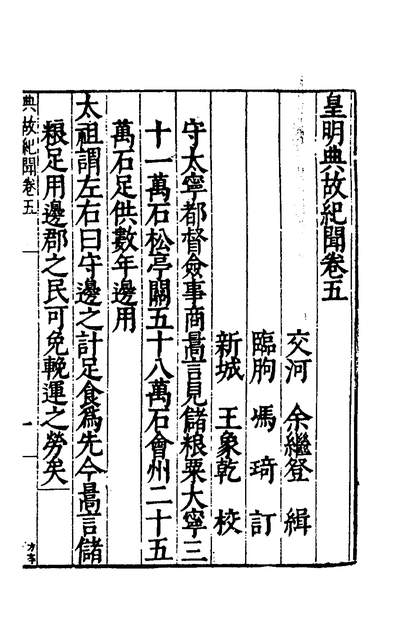 皇明典故紀聞卷五
交河 余繼登 緝
臨朐 馮琦 訂
新城 王象乾 校
守太寧都督僉事商暠言見儲粮粟大寧三
十一萬石松亭關五十八萬石會州二十五
萬石足供數年邊用
太祖謂左右曰守邊之計足食爲先今暠言儲
粮足用邊郡之民可免輓運之勞矣
典故紀聞卷五
一